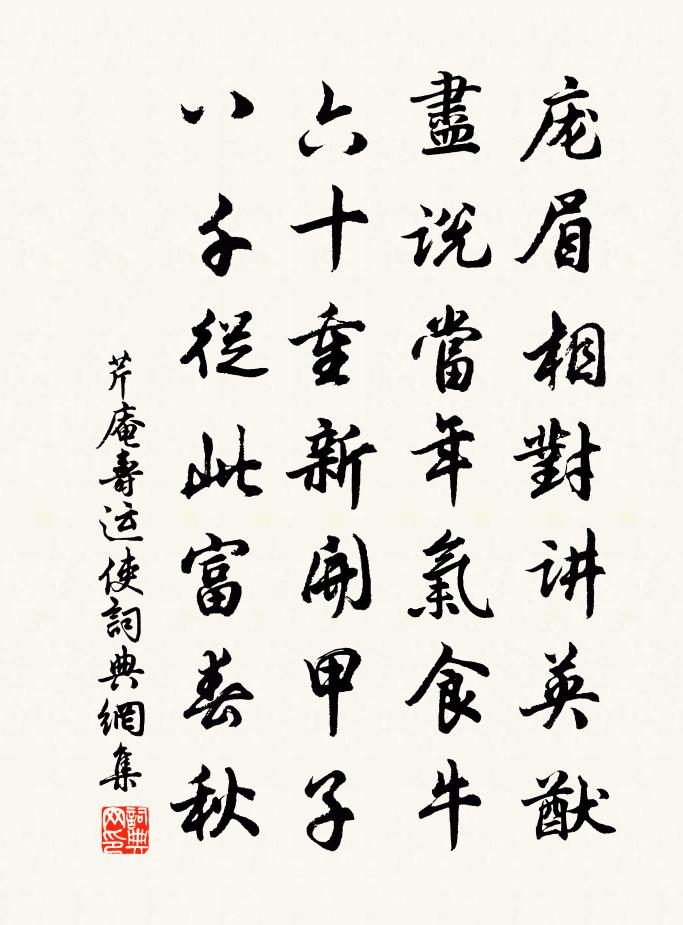 庬眉相對讲英猷
盡说當年氣食牛
六十重新開甲子
八千從此富春秋
芹庵壽运使詞典網集
詞典网印